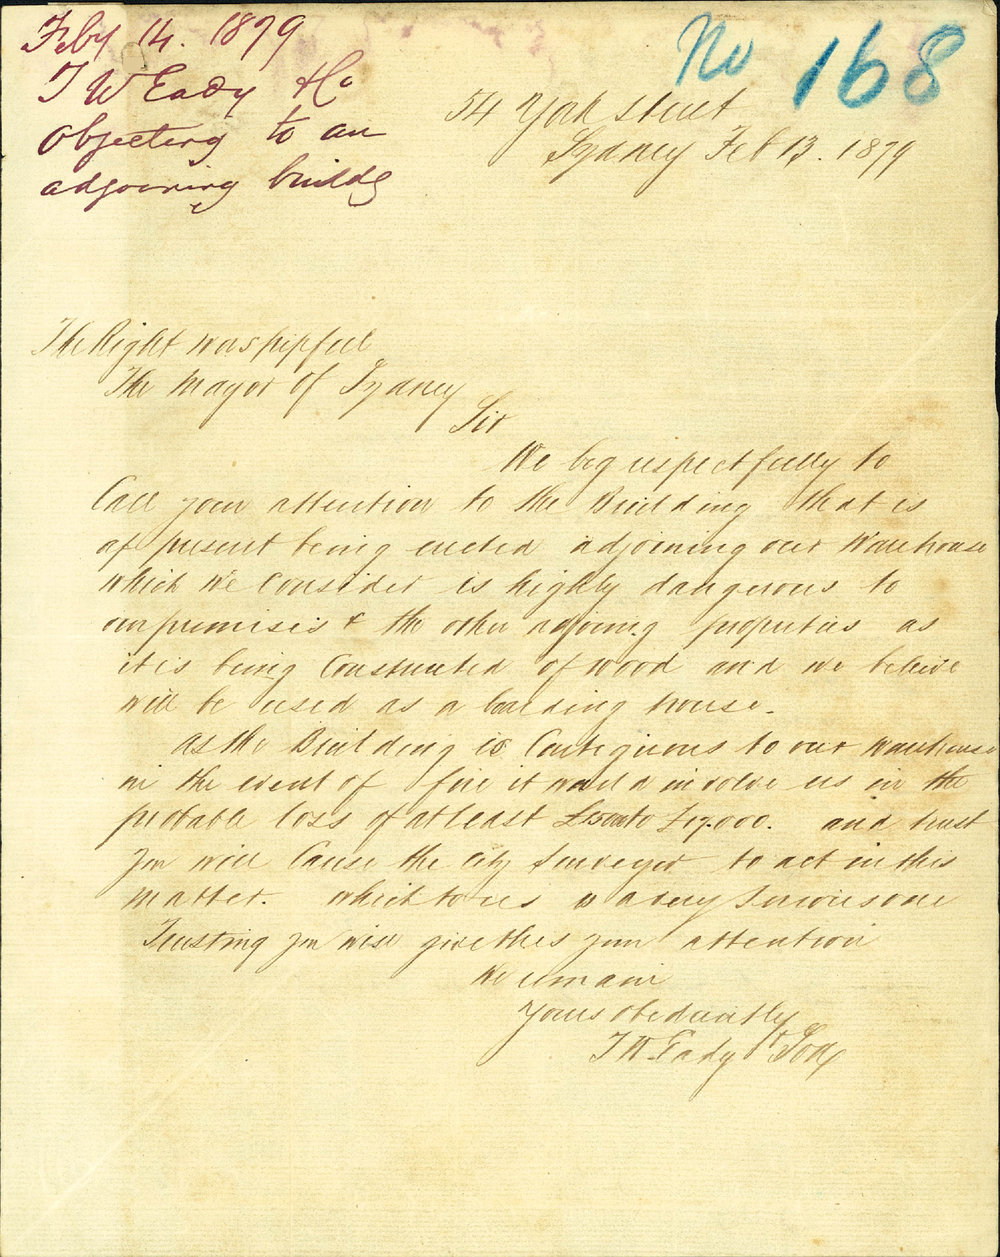 Feby 14. 1879
T W Eady & Co
Objecting to an
adjoining buildg
No 168
54 York street
Sydney Feb 13. 1879
The Right Worshipful
The Mayor of Sydney
Sir
We beg respectfully to
Call your attention to the Building that is
at present being erected adjoining our Warehouse
which we consider is highly dangerous to
our premises & the other adjoining properties as
it is being Constructed of wood and we believe
will be used as a boarding house.
As the Building is Contiguous to our Warehouse
in the event of fire it would involve us in the
probable loss of at least to 000. and trust
you will Cause the City Surveyor to act in this
matter. which to us is a very serious one
Trusting you will give this your attention
We remain
Yours obediently
T W Eady & Son